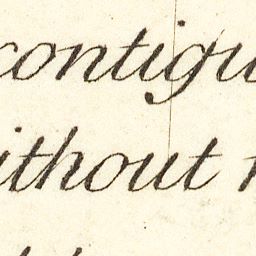 contigu
ithout